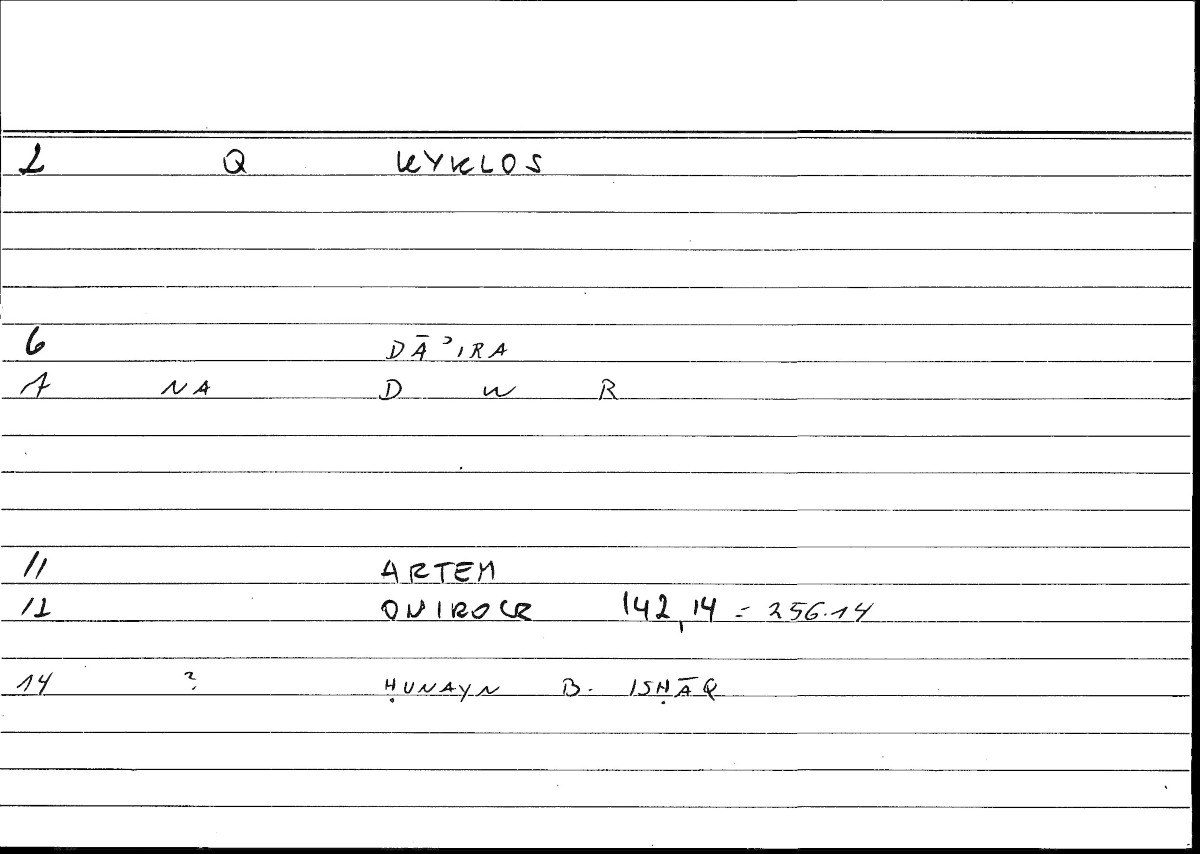 2 Q KYKLOS
6 DĀʾIRA
7 NA D W R
11 ARTEM
12 ONIROCR 142,14 = 256.14
14 ? ḤUNAYN B. ISḤĀQ